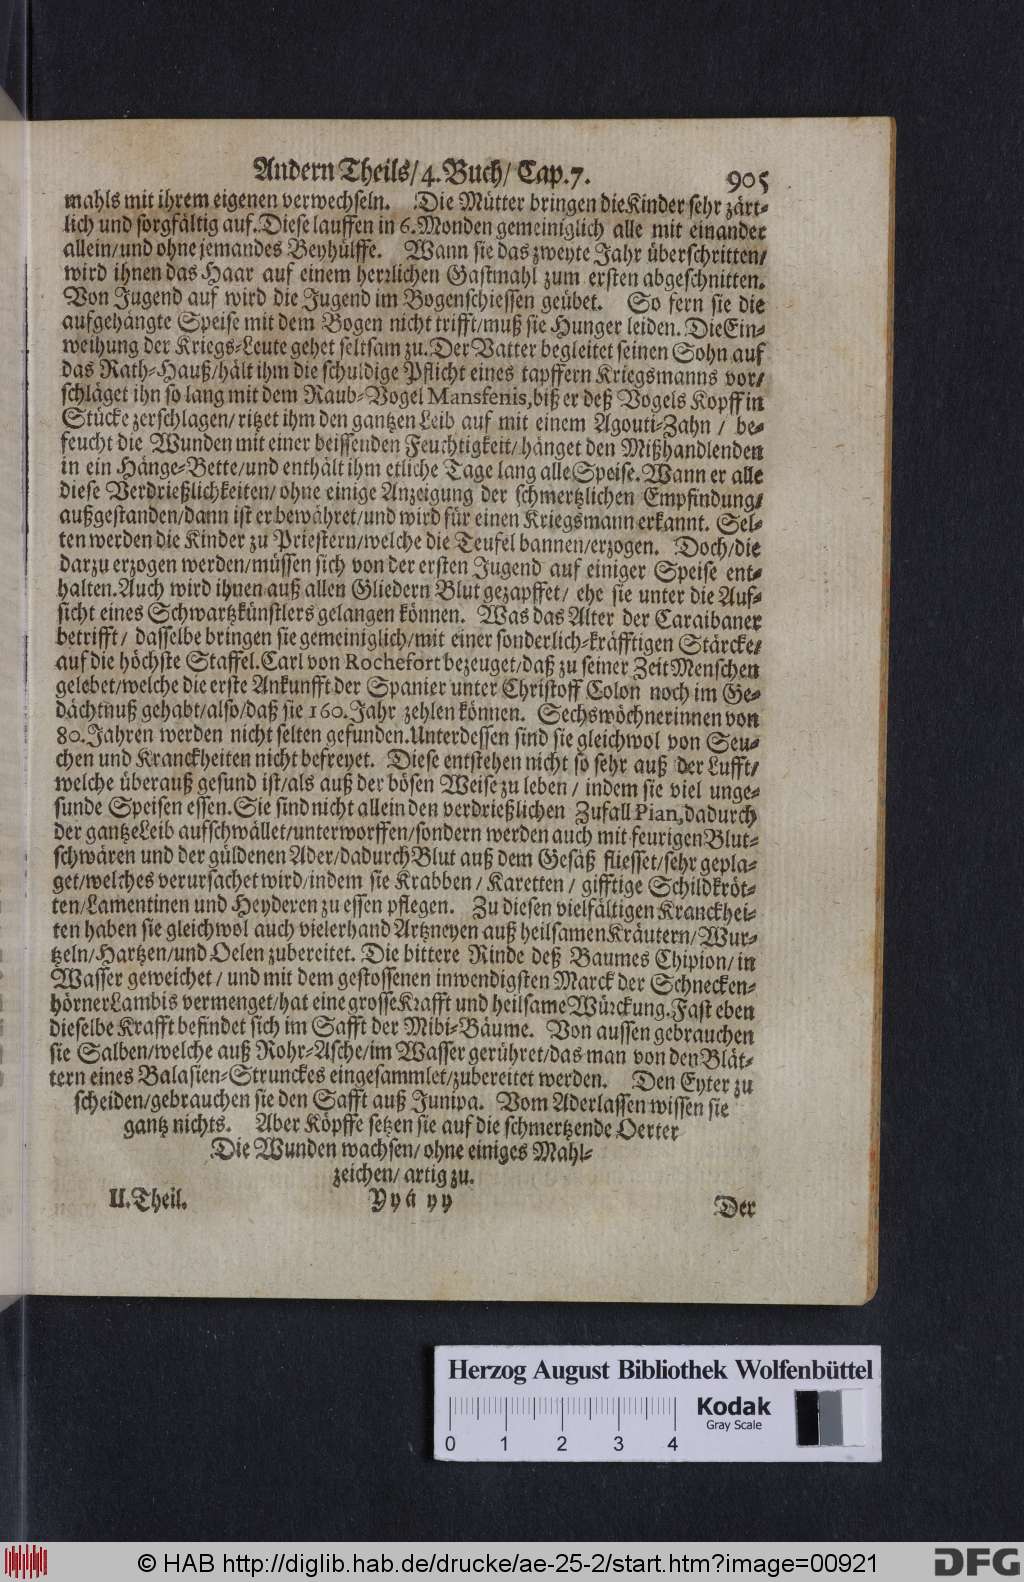 Andern Theils/ 4. Buch/ Cap. 7. 905
mahls mit ihrem eigenen verwechseln. Die Mütter bringen die Kinder sehr zärt-
lich und sorgfältig auf. Diese lauffen in 6. Monden gemeiniglich alle mit einander
allein/ und ohne jemandes Beyhülffe. Wann sie das zweyte Jahr überschritten/
wird ihnen das Haar auf einem herrlichen Gastmahl zum ersten abgeschnitten.
Von Jugend auf wird die Jugend im Bogenschiessen geübet. So fern sie die
aufgehängte Speise mit dem Bogen nicht trifft/ muß sie Hunger leiden. Die Ein-
weihung der Kriegs-Leute gehet seltsam zu. Der Vatter begleitet seinen Sohn auf
das Rath-Hauß/ hält ihm die schuldige Pflicht eines tapffern Kriegsmanns vor/
schläget ihn so lang mit dem Raub-Vogel Mansfenis, biß er deß Vogels Kopff in
Stücke zerschlagen/ ritzet ihm den gantzen Leib auf mit einem Agouti-Zahn / be-
feucht die Wunden mit einer beissenden Feuchtigkeit/ hänget den Mißhandlenden
in ein Hänge-Bette/ und enthält ihm etliche Tage lang alle Speise. Wann er alle
diese Verdrießlichkeiten/ ohne einige Anzeigung der schmertzlichen Empfindung/
außgestanden/ dann ist er bewähret/ und wird für einen Kriegsmann erkannt. Sel-
ten werden die Kinder zu Priestern/ welche die Teufel bannen/ erzogen. Doch/ die
darzu erzogen werden/ müssen sich von der ersten Jugend auf einiger Speise ent-
halten. Auch wird ihnen auß allen Gliedern Blut gezapffet/ ehe sie unter die Auf-
sicht eines Schwartzkünstlers gelangen können. Was das Alter der Caraibaner
betrifft/ dasselbe bringen sie gemeiniglich/ mit einer sonderlich-kräfftigen Stärcke/
auf die höchste Staffel. Carl von Rochefort bezeuget/ daß zu seiner Zeit Menschen
gelebet/ welche die erste Ankunfft der Spanier unter Christoff Colon noch im Ge-
dächtnuß gehabt/ also/ daß sie 160. Jahr zehlen können. Sechswöchnerinnen von
80. Jahren werden nicht selten gefunden. Unterdessen sind sie gleichwol von Seu-
chen und Kranckheiten nicht befreyet. Diese entstehen nicht so sehr auß der Lufft/
welche überauß gesund ist/ als auß der bösen Weise zu leben / indem sie viel unge-
sunde Speisen essen. Sie sind nicht allein den verdrießlichen Zufall Pian, dadurch
der gantze Leib aufschwället/ unterworffen/ sondern werden auch mit feurigen Blut-
schwären und der güldenen Ader/ dadurch Blut auß dem Gesäß fliesset/ sehr gepla-
get/ welches verursachet wird/ indem sie Krabben / Karetten / gifftige Schildkröt-
ten/ Lamentinen und Heyderen zu essen pflegen. Zu diesen vielfältigen Kranckhei-
ten haben sie gleichwol auch vielerhand Artzneyen auß heilsamen Kräutern/ Wur-
tzeln/ Hartzen/ und Oelen zubereitet. Die bittere Rinde deß Baumes Chipion/ in
Wasser geweichet / und mit dem gestossenen inwendigsten Marck der Schnecken-
hörner Lambis vermenget/ hat eine grosse Krafft und heilsame Würckung. Fast eben
dieselbe Krafft befindet sich im Safft der Mibi-Bäume. Von aussen gebrauchen
sie Salben/ welche auß Rohr-Asche/ im Wasser gerühret/ das man von den Blät-
tern eines Balasien-Strunckes eingesammlet/ zubereitet werden. Den Eyter zu
scheiden/ gebrauchen sie den Safft auß Junipa. Vom Aderlassen wissen sie
gantz nichts. Aber Köpffe setzen sie auf die schmertzende Oerter
Die Wunden wachsen/ ohne einiges Mahl-
zeichen/ artig zu.
II. Theil. Yyy yy Der
Herzog August Bibliothek Wolfenbüttel
Kodak
Gray Scale
0 1 2 3 4
© HAB http://diglib.hab.de/drucke/ae-25-2/start.htm?image=00921
DFG